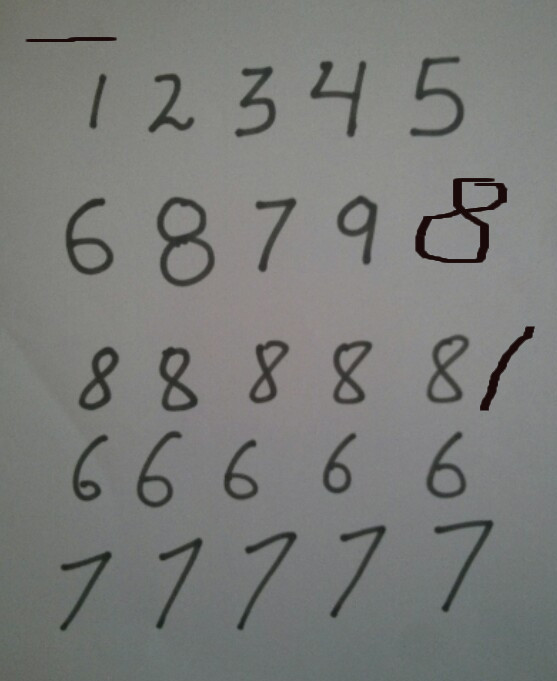 1 2 3 4 5
6 8 7 9 8
8 8 8 8 8 /
6 6 6 6 6
7 7 7 7 7